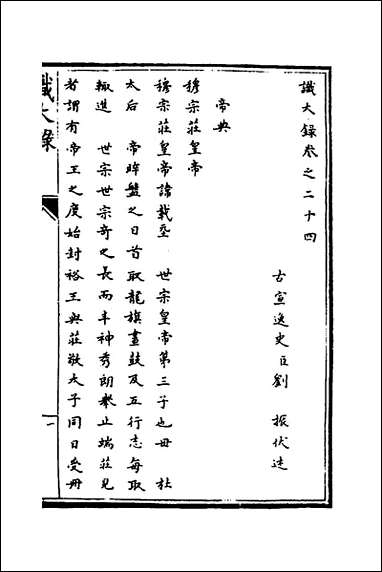 識大錄卷之二十四
古宣逸史臣劉 振伏述
帝典
穆宗莊皇帝
穆宗莊皇帝諱載坖 世宗皇帝第三子也母 杜
太后 帝晬盤之日首取龍旗畫鼓及五行志每取
輙進 世宗世宗奇之長而丰神秀朗舉止端莊見
者謂有帝王之度始封裕王與莊敬太子同日受冊
識大錄
一